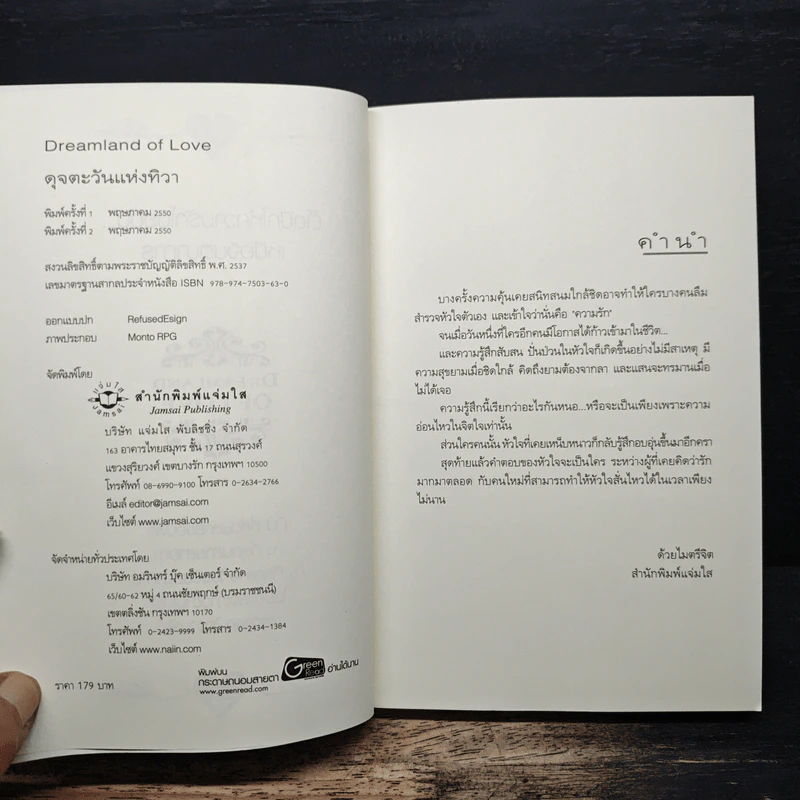 Dreamland of Love
ดุจตะวันแห่งทิวา
พิมพ์ครั้งที่ 1 พฤษภาคม 2550
พิมพ์ครั้งที่ 2 พฤษภาคม 2550
สงวนลิขสิทธิ์ตามพระราชบัญญัติลิขสิทธิ์ พ.ศ. 2537
เลขมาตรฐานสากลประจำหนังสือ ISBN 978-974-7503-63-0
ออกแบบปก RefusedEsign
ภาพประกอบ Monto RPG
จัดพิมพ์โดย
แจ่มใส
Jamsai
สำนักพิมพ์แจ่มใส
Jamsai Publishing
บริษัท แจ่มใส พับลิชชิ่ง จำกัด
163 อาคารไทยสมุทร ชั้น 17 ถนนสุรวงศ์
แขวงสุริยวงศ์ เขตบางรัก กรุงเทพฯ 10500
โทรศัพท์ 08-6990-9100 โทรสาร 0-2634-2766
อีเมล์ editor@jamsai.com
เว็บไซต์ www.jamsai.com
จัดจำหน่ายทั่วประเทศโดย
บริษัท อมรินทร์ บุ๊ค เซ็นเตอร์ จำกัด
65/60-62 หมู่ 4 ถนนชัยพฤกษ์ (บรมราชชนนี)
เขตตลิ่งชัน กรุงเทพฯ 10170
โทรศัพท์ 0-2423-9999 โทรสาร 0-2434-1384
เว็บไซต์ www.naiin.com
ราคา 179 บาท
พิมพ์บน
กระดาษถนอมสายตา Green Read อ่านได้นาน
www.greenread.com
คำนำ
บางครั้งความคุ้นเคยสนิทสนมใกล้ชิดอาจทำให้ใครบางคนลืม
สำรวจหัวใจตัวเอง และเข้าใจว่านั่นคือ "ความรัก"
จนเมื่อวันหนึ่งที่ใครอีกคนมีโอกาสได้ก้าวเข้ามาในชีวิต...
และความรู้สึกสับสน ปั่นป่วนในหัวใจก็เกิดขึ้นอย่างไม่มีสาเหตุ มี
ความสุขยามเมื่อชิดใกล้ คิดถึงยามต้องจากลา และแสนจะทรมานเมื่อ
ไม่ได้เจอ
ความรู้สึกนี้เรียกว่าอะไรกันหนอ...หรือจะเป็นเพียงเพราะความ
อ่อนไหวในจิตใจเท่านั้น
ส่วนใครคนนั้น หัวใจที่เคยเหน็บหนาวก็กลับรู้สึกอบอุ่นขึ้นมาอีกครา
สุดท้ายแล้วคำตอบของหัวใจจะเป็นใคร ระหว่างผู้ที่เคยคิดว่ารัก
มากมาตลอด กับคนใหม่ที่สามารถทำให้หัวใจสั่นไหวได้ในเวลาเพียง
ไม่นาน
ด้วยไมตรีจิต
สำนักพิมพ์แจ่มใส